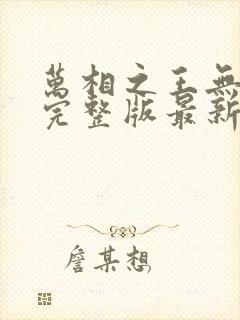 萬相之王無
完整版最新
詹某想